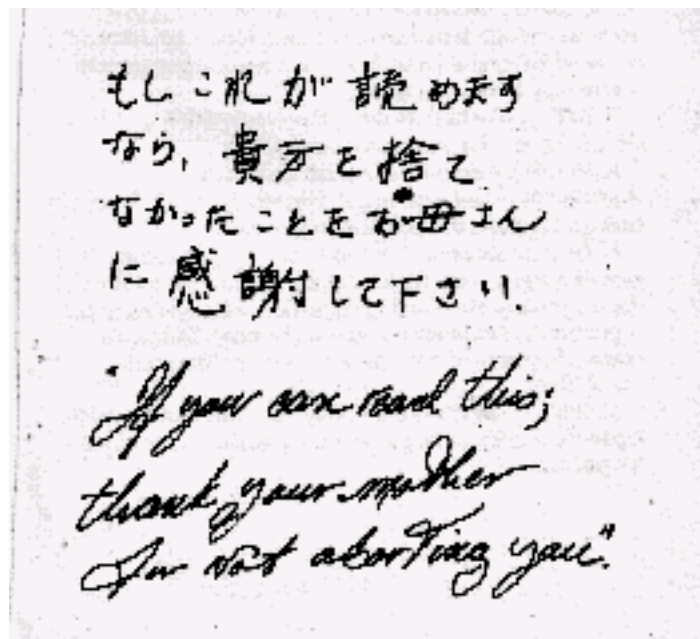 もしこれが読めます
なら、貴方を捨て
なかったことをお母さん
に感謝して下さい
"If you can read this;
thank your mother
for not aborting you".